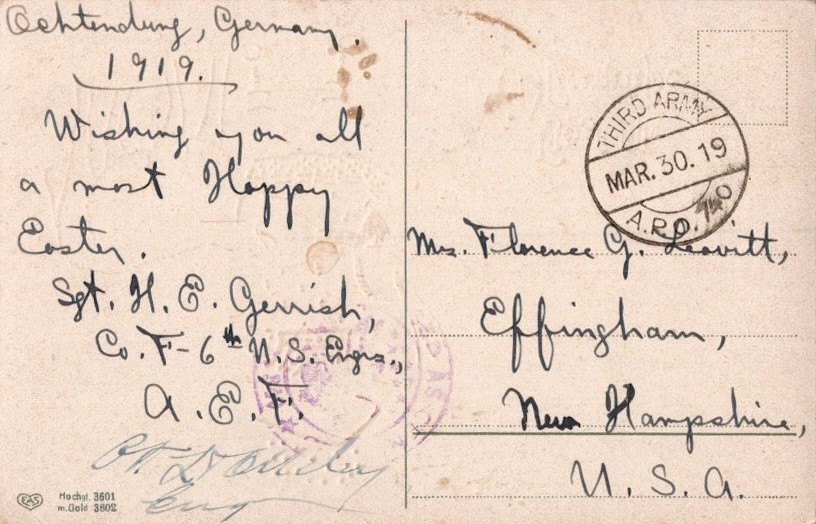 Ochtendung, Germany.
1919.
Wishing you all
a most Happy
Easter.
Sgt. H. E. Gerrish,
Co. F-6th U.S. Engrs.,
A. E. F.
Eng
EAS
Hochgl. 3601
m.Gold 3602
THIRD ARMY
MAR. 30. 19
A.P.O. 740
Mrs. Florence G. Leavitt,
Effingham,
New Hampshire,
U. S. A.